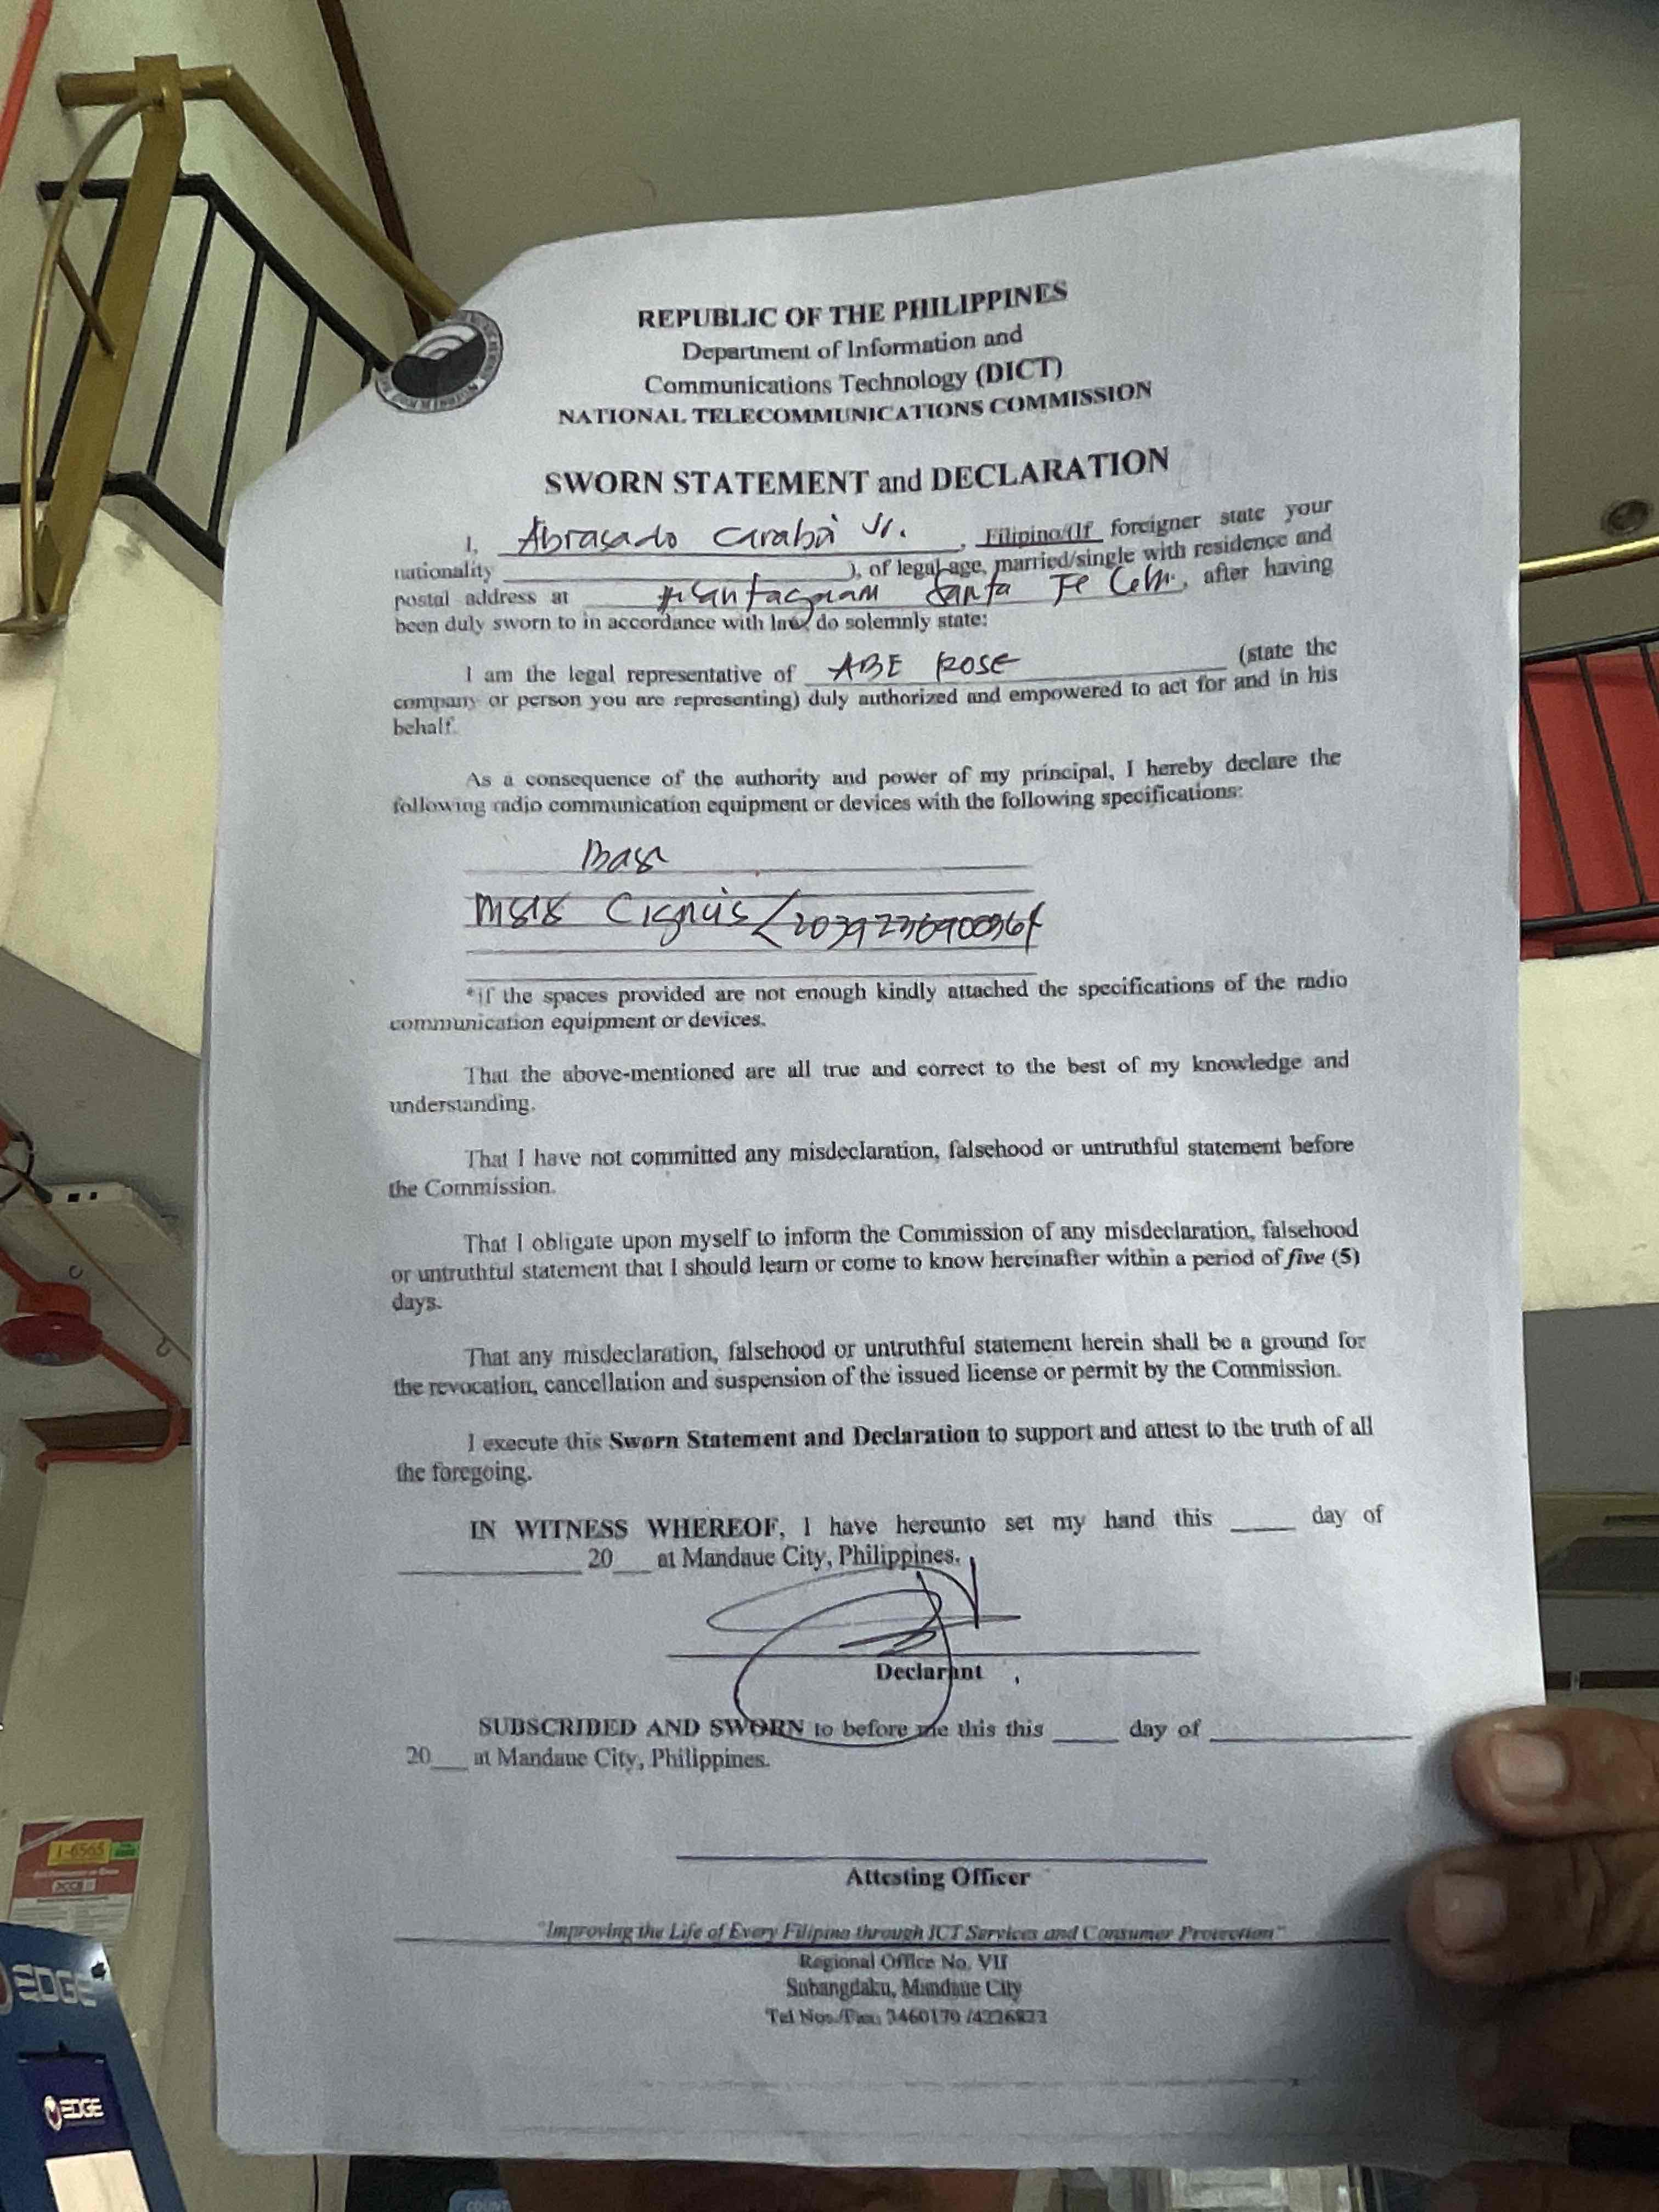 REPUBLIC OF THE PHILIPPINES
Department of Information and
Communications Technology (DICT)
NATIONAL TELECOMMUNICATIONS COMMISSION
SWORN STATEMENT and DECLARATION
I, Abrasado Carabi Jr. , Filipino/(If foreigner state your
nationality ), of legal age, married/single with residence and
postal address at Santa Fe Cebu , after having
been duly sworn to in accordance with law, do solemnly state:
I am the legal representative of ABE ROSE (state the
company or person you are representing) duly authorized and empowered to act for and in his
behalf.
As a consequence of the authority and power of my principal, I hereby declare the
following radio communication equipment or devices with the following specifications:
*if the spaces provided are not enough kindly attached the specifications of the radio
communication equipment or devices.
That the above-mentioned are all true and correct to the best of my knowledge and
understanding.
That I have not committed any misdeclaration, falsehood or untruthful statement before
the Commission.
That I obligate upon myself to inform the Commission of any misdeclaration, falsehood
or untruthful statement that I should learn or come to know hereinafter within a period of five (5)
days.
That any misdeclaration, falsehood or untruthful statement herein shall be a ground for
the revocation, cancellation and suspension of the issued license or permit by the Commission.
I execute this Sworn Statement and Declaration to support and attest to the truth of all
the foregoing.
IN WITNESS WHEREOF, I have hereunto set my hand this ____ day of
____ 20__ at Mandaue City, Philippines.
Declarant
SUBSCRIBED AND SWORN to before me this this ____ day of ____
20__ at Mandaue City, Philippines.
Attesting Officer
"Improving the Life of Every Filipino through ICT Services and Consumer Protection"
Regional Office No. VII
Subangdaku, Mandaue City
Tel Nos./Fax: 3460179 /4226823
1-6565
EDGE
EDGE